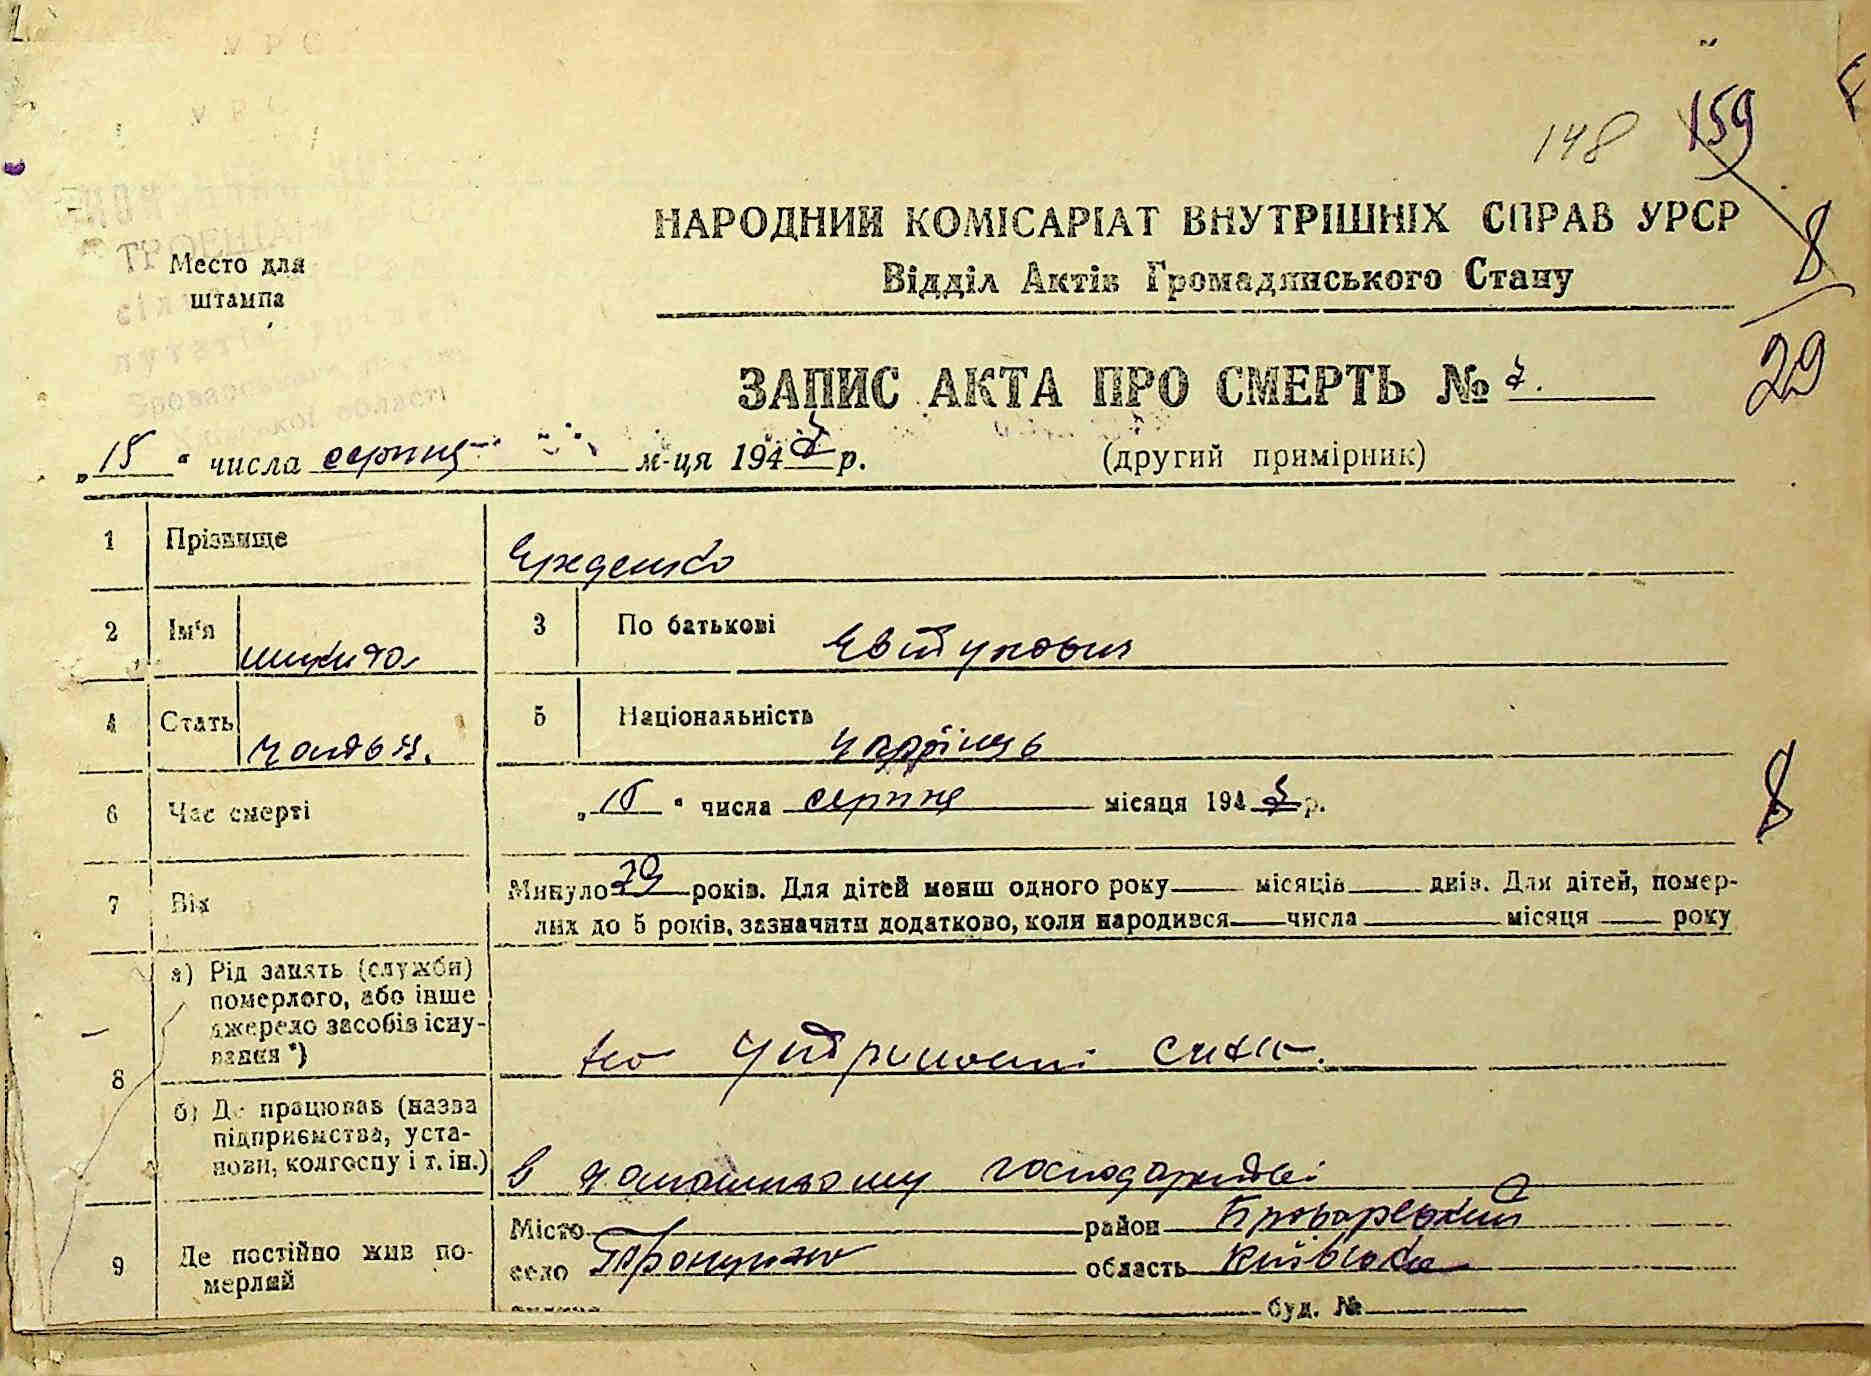 148 159
8
29
НАРОДНИЙ КОМІСАРІАТ ВНУТРІШНІХ СПРАВ УРСР
Відділ Актів Громадянського Стану
Место для
штампа
ЗАПИС АКТА ПРО СМЕРТЬ №
„15“ числа серпня м-ця 194 р.
(другий примірник)
1 Прізвище
2 Ім'я Микита 3 По батькові Явтухович
4 Стать 5 Національність Українець
6 Час смерті „15“ числа серпня місяця 194 р. 8
7 Вік Минуло років. Для дітей менш одного року місяців днів. Для дітей, помер-
лих до 5 років, зазначити додатково, коли народився числа місяця року
8 а) Рід занять (служби)
померлого, або інше
джерело засобів існу-
вання*) на утриманні сина.
б) Де працював (назва
підприємства, уста-
нови, колгоспу і т. ін.) в домашньому господарстві
9 Де постійно жив по-
мерлий
Місто район Броварський
село область Київська
буд. №